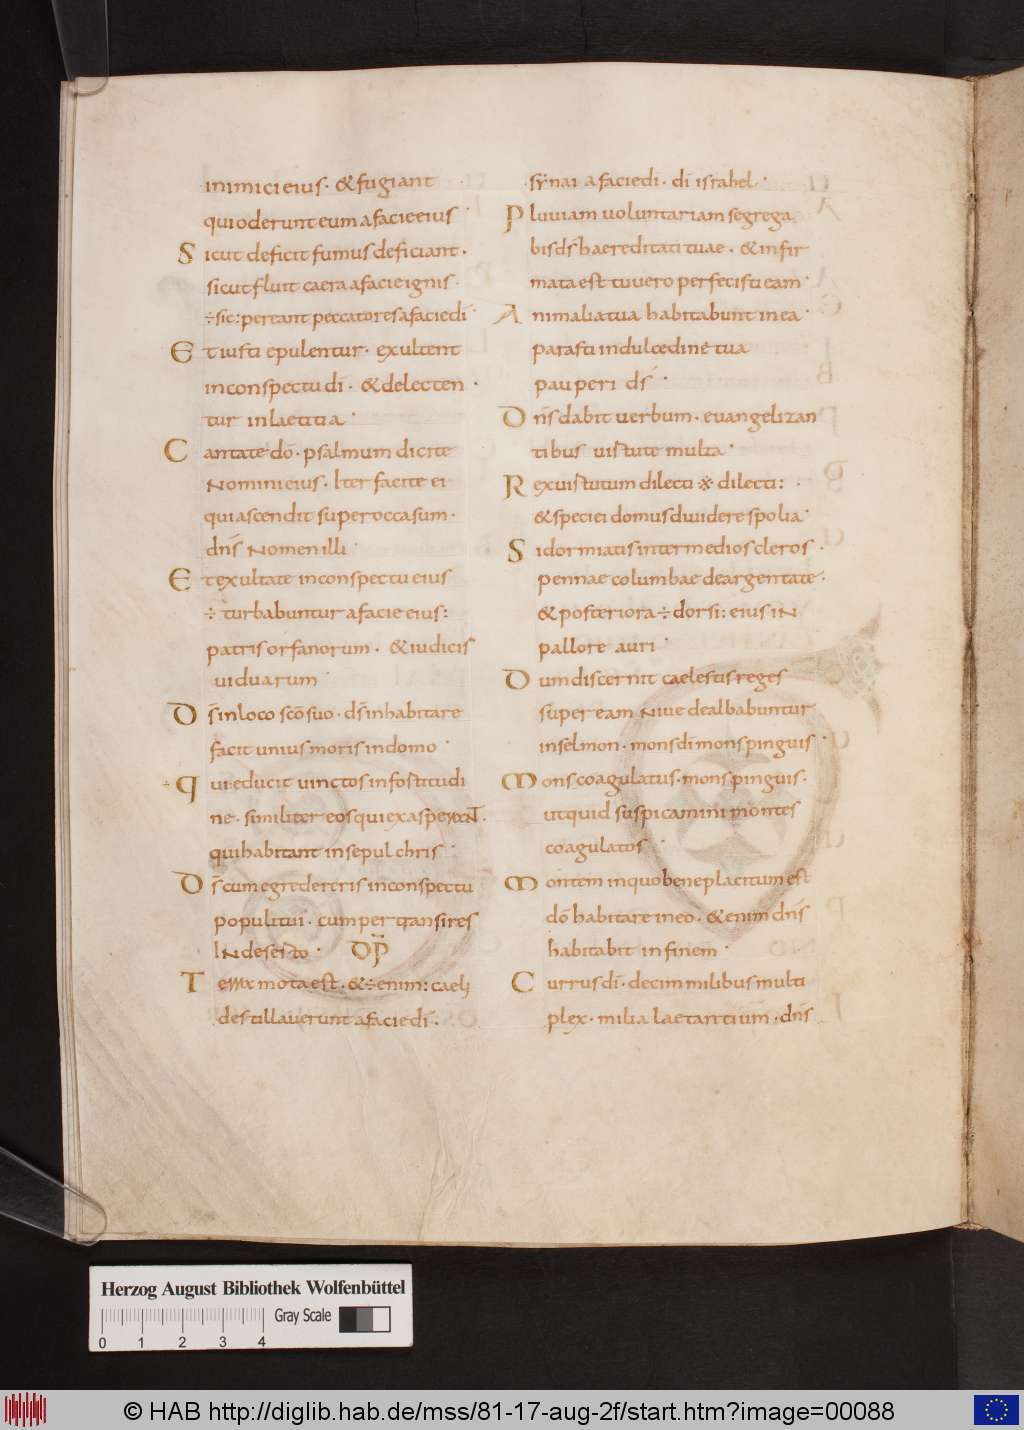 inimici eius · & fugiant
qui oderunt eum a facie eius ·
Sicut deficit fumus deficiant ·
sicut fluit caera a facie ignis ·
÷ sic : pereant peccatores a facie dī ·
Et iusti epulentur · exultent
in conspectu dī · & delecten ·
tur in laetitia ·
Cantate dō · psalmum dicite
Nomini eius · Iter facite ei
qui ascendit super occasum ·
dns̄ Nomen illi ·
Et exultate in conspectu eius
÷ turbabuntur a facie eius :
patris orfanorum · & iudicis
uiduarum
Ds̄ in loco scō suo · ds̄ inhabitare
facit unius moris in domo ·
qui : educit uinctos in fortitudi
ne · similiter eos qui exasperant ·
qui habitant in sepulchris ·
Ds̄ cum egredereris in conspectu
populi tui · cum pertransires
IN deserto · DP̄
Terra mota est · & ÷ enim : caeli
destillauerunt a facie dī ·
synai a facie dī · dī israhel ·
Pluuiam uoluntariam segrega
bis ds̄ haereditati tuae · & infir
mata est tu uero perfecisti eam ·
Animalia tua habitabunt in ea ·
parasti in dulcedine tua
pauperi ds̄ ·
Dns̄ dabit uerbum · euangelizan
tibus uirtute multa ·
Rex uirtutum dilecti ※ dilecti : ·
& speciei domus diuidere spolia ·
Si dormiatis inter medios cleros ·
pennae columbae deargentate ·
& posteriora ÷ dorsi : eius iN
pallore auri ·
Dum discernit caelestis reges
super eam Niue dealbabuntur
in selmon · mons dī mons pinguis ·
Mons coagulatus · mons pinguis ·
ut quid suspicamini montes
coagulatos ·
Montem in quo beneplacitum est
dō habitare in eo · & enim dns̄
habitabit in finem ·
Currus dī · decim milibus multi
plex · milia laetantium · dns̄
Herzog August Bibliothek Wolfenbüttel
Gray Scale
0 1 2 3 4
© HAB http://diglib.hab.de/mss/81-17-aug-2f/start.htm?image=00088